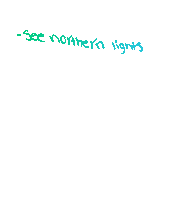 - See northern lights